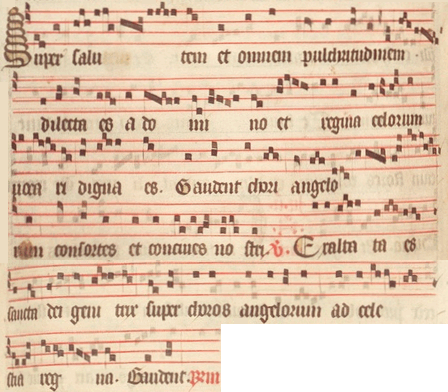 Super salu tem et omnem pulchritudinem
dilecta es a do mi no et regina celorum
uoca ri digna es. Gaudent chori angelo
rum consortes et conciues no stri. V. Exalta ta es
sancta dei geni trix super choros angelorum ad cele
stia reg na. Gaudent